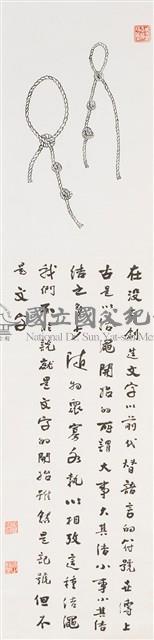 在沒創造文字以前代替語言的符號世傳上
古是以結繩開始的所謂大事大其結小事小其結
結之多少隨物眾寡各執以相攷這種結繩
我們不能說就是文字的開始雖然是記號但不
是文字
國立國父紀
National Dr. Sun Yat-sen Me